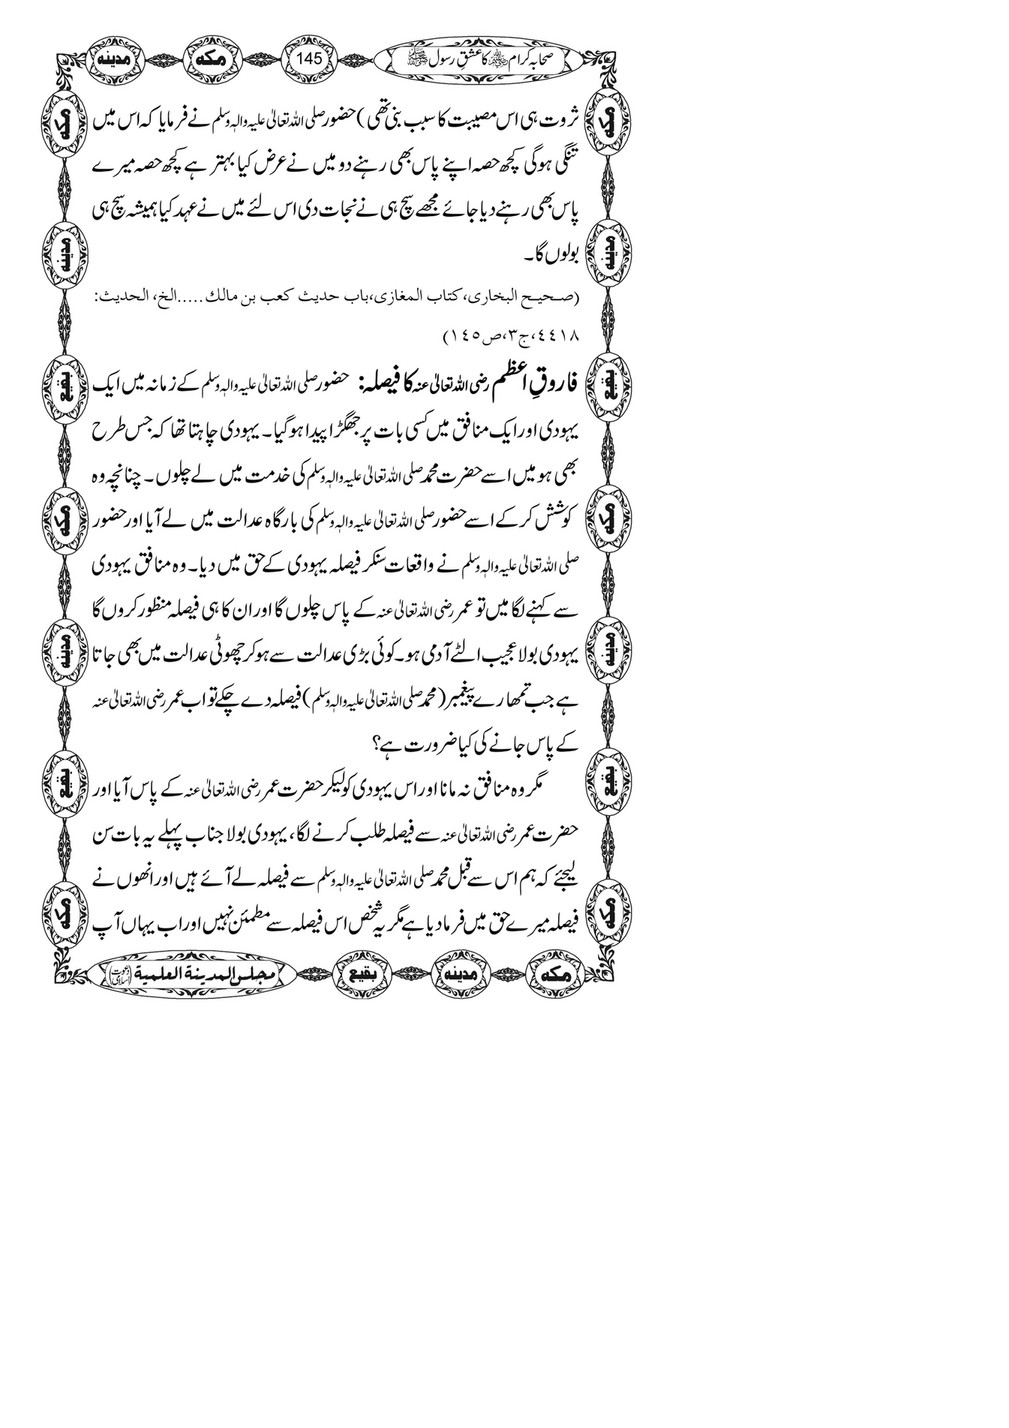 صحابہ کرام ﷺ کا عشق رسول ﷺ 145 مکه مدینه
ثروت ہی اس مصیبت کا سبب بنی تھی) حضور صلی اللہ تعالیٰ علیہ والہٖ وسلم نے فرمایا کہ اس میں
تنگی ہوگی کچھ حصہ اپنے پاس بھی رہنے دو میں نے عرض کیا بہتر ہے کچھ حصہ میرے
پاس بھی رہنے دیا جائے مجھے سچ ہی نے نجات دی اس لئے میں نے عہد کیا ہمیشہ سچ ہی
بولوں گا۔
(صحیح البخاری، کتاب المغازی، باب حدیث کعب بن مالك.....الخ، الحدیث:
٤٤١٨، ج٣، ص١٤٥)
فاروقِ اعظم رضی اللہ تعالیٰ عنہ کا فیصلہ: حضور صلی اللہ تعالیٰ علیہ والہٖ وسلم کے زمانہ میں ایک
یہودی اور ایک منافق میں کسی بات پر جھگڑا پیدا ہوگیا۔ یہودی چاہتا تھا کہ جس طرح
بھی ہو میں اسے حضرت محمد صلی اللہ تعالیٰ علیہ والہٖ وسلم کی خدمت میں لے چلوں۔ چنانچہ وہ
کوشش کر کے اسے حضور صلی اللہ تعالیٰ علیہ والہٖ وسلم کی بارگاہ عدالت میں لے آیا اور حضور
صلی اللہ تعالیٰ علیہ والہٖ وسلم نے واقعات سنکر فیصلہ یہودی کے حق میں دیا۔ وہ منافق یہودی
سے کہنے لگا میں تو عمر رضی اللہ تعالیٰ عنہ کے پاس چلوں گا اور ان کا ہی فیصلہ منظور کروں گا
یہودی بولا عجیب الٹے آدمی ہو۔ کوئی بڑی عدالت سے ہوکر چھوٹی عدالت میں بھی جاتا
ہے جب تمھارے پیغمبر (محمد صلی اللہ تعالیٰ علیہ والہٖ وسلم) فیصلہ دے چکے تو اب عمر رضی اللہ تعالیٰ عنہ
کے پاس جانے کی کیا ضرورت ہے؟
مگر وہ منافق نہ مانا اور اس یہودی کو لیکر حضرت عمر رضی اللہ تعالیٰ عنہ کے پاس آیا اور
حضرت عمر رضی اللہ تعالیٰ عنہ سے فیصلہ طلب کرنے لگا، یہودی بولا جناب پہلے یہ بات سن
لیجئے کہ ہم اس سے قبل محمد صلی اللہ تعالیٰ علیہ والہٖ وسلم سے فیصلہ لے آئے ہیں اور انھوں نے
فیصلہ میرے حق میں فرمادیا ہے مگر یہ شخص اس فیصلہ سے مطمئن نہیں اور اب یہاں آپ
مکه مدینه بقیع مجلس المدینة العلمیة (دعوت اسلامی)
مکه
مدینه
بقیع
مکه
مدینه
بقیع
مکه
مکه
مدینه
بقیع
مکه
مدینه
بقیع
مکه